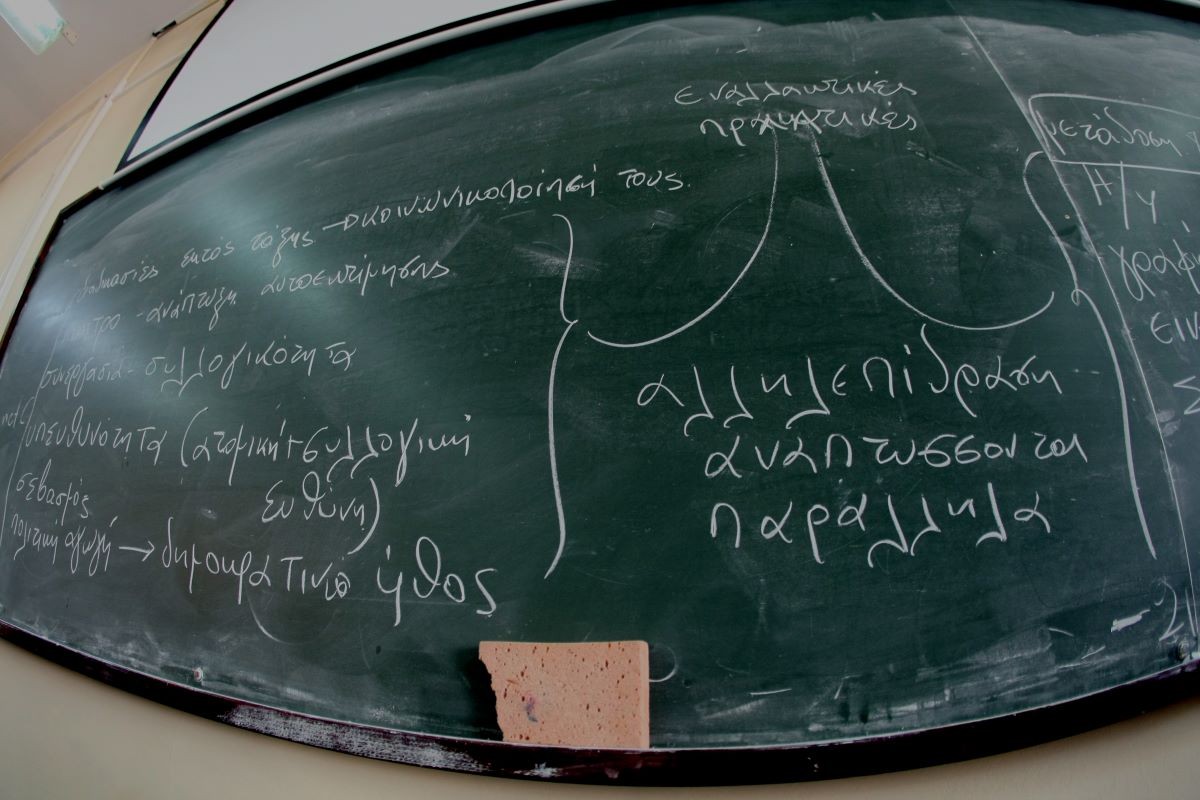 εναλλακτικές
πρακτικές
διαδικασίες εκτός τάξης → κοινωνικοποίησή τους.
κίνητρο - ανάπτυξη αυτοεκτίμησης
συνεργασία - συλλογικότητα
υπευθυνότητα (ατομική + συλλογική
ευθύνη)
σεβασμός
πολιτική αγωγή → δημοκρατικό ήθος
αλληλεπίδραση
αναπτύσσονται
παράλληλα
μετάδοση
Η/Υ